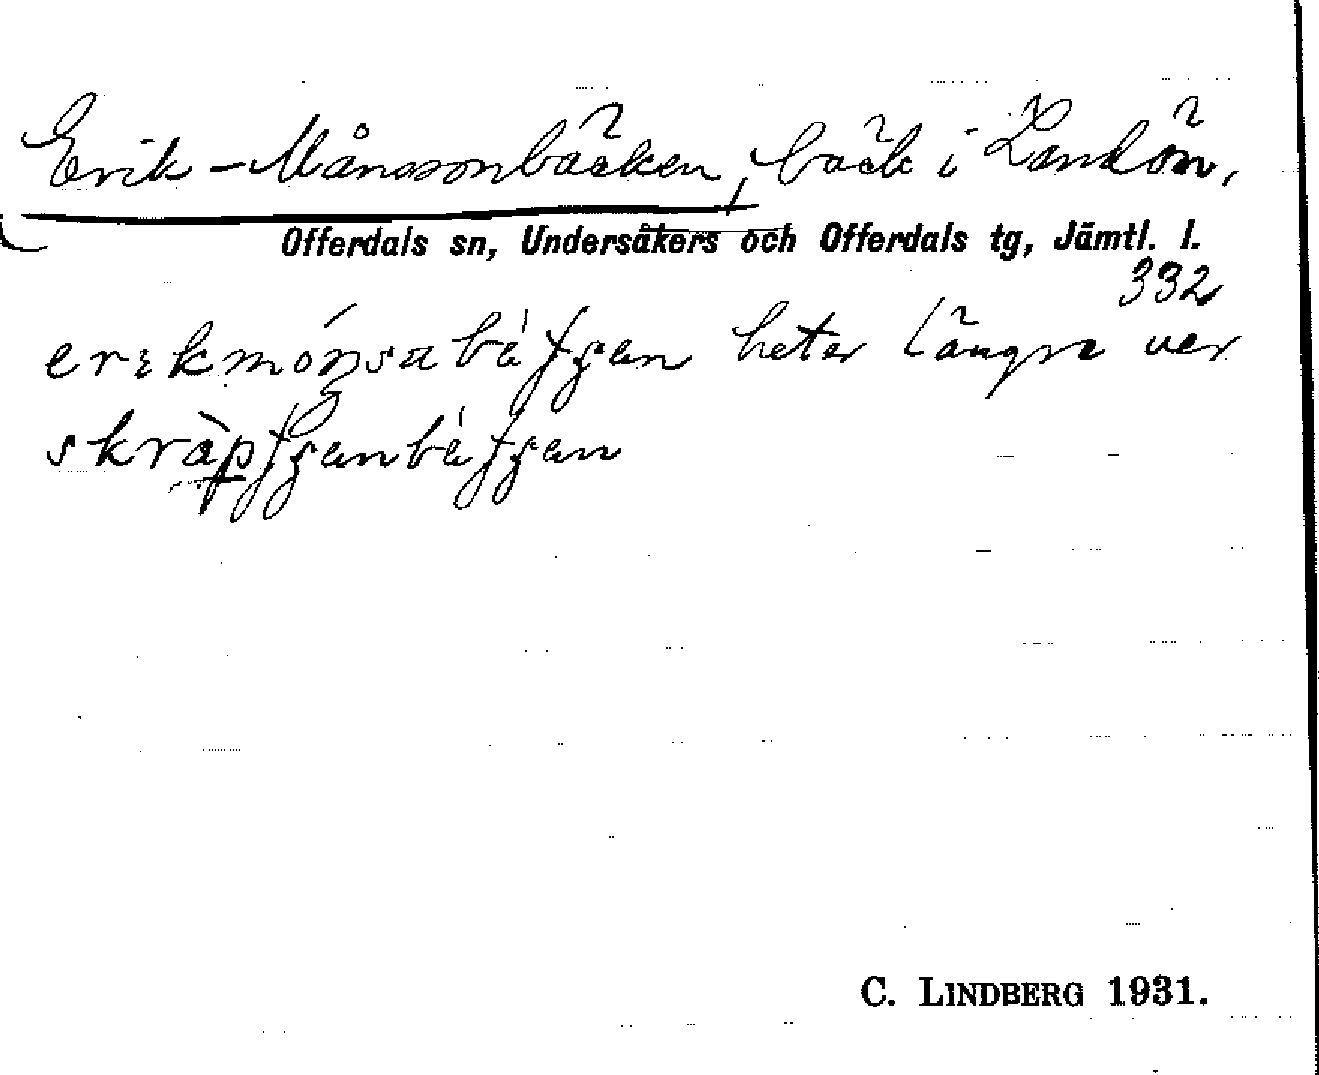 Erik-Månssonbäcken, bäck i Landön,
Offerdals sn, Undersåkers och Offerdals tg, Jämtl. l.
332
heter längre ner
C. LINDBERG 1931.